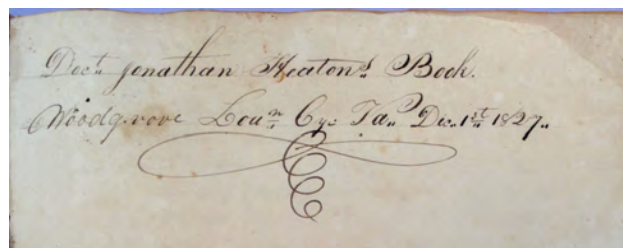 Doct. Jonathan Heatons Book.
Woodgrove Loun Cy. Va. Dec. 1st 1827.